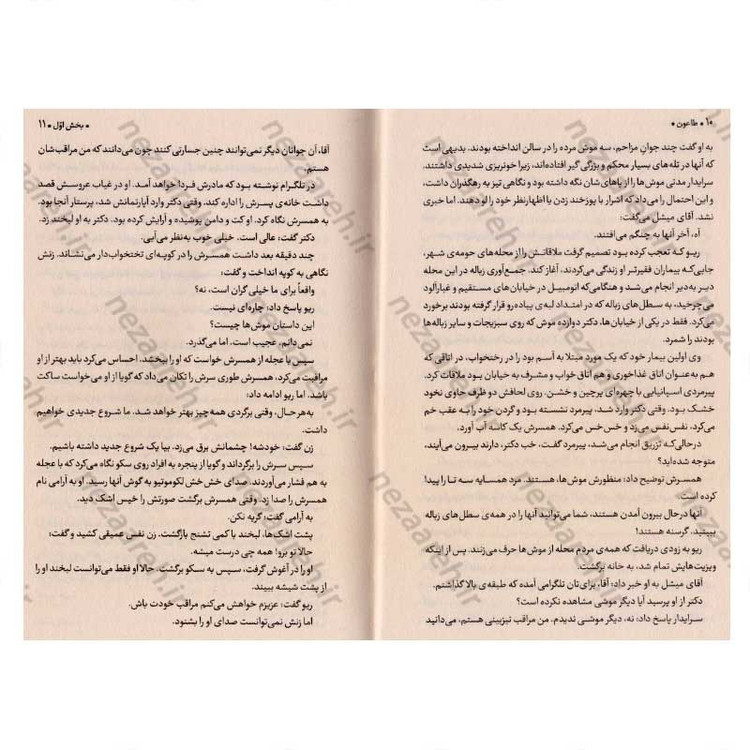 ۱۰ • طاعون •
به او گفت چند جوانِ مزاحم، سه موش مرده را در سالن انداخته بودند. بدیهی است
که آنها در تله‌های بسیار محکم و بزرگی گیر افتاده‌اند، زیرا خونریزی شدیدی داشتند.
سرایدار مدتی موش‌ها را از پاهای شان نگه داشته بود و نگاهی تیز به رهگذران داشت،
و این احتمال را می‌داد که اشرار با پوزخند زدن یا اظهارنظر خود را لو دهند. اما خبری
نشد. آقای میشل می‌گفت:
آه، آخر آنها به چنگم می‌افتند.
ریو که تعجب کرده بود تصمیم گرفت ملاقاتش را از محله‌های حومه‌ی شهر،
جایی‌که بیماران فقیرتر او زندگی می‌کردند، آغاز کند. جمع‌آوری زباله در این محله
دیر به‌دیر انجام می‌شد و هنگامی‌که اتومبیل در خیابان‌های مستقیم و غبارآلود
می‌چرخید، به سطل‌های زباله که در امتداد لبه‌ی پیاده‌رو قرار گرفته بودند برخورد
می‌کرد. فقط در یکی از خیابان‌ها، دکتر دوازده موش که روی سبزیجات و سایر زباله‌ها
بودند را شمرد.
وی اولین بیمار خود که یک مورد مبتلا به آسم بود را در رختخواب، در اتاقی که
هم به‌عنوان اتاق غذاخوری و هم اتاق خواب و مشرف به خیابان بود ملاقات کرد.
پیرمردی اسپانیایی با چهره‌ای پرچین و خشن، روی لحافش دو ظرف حاوی نخود
خشک بود. وقتی دکتر وارد شد، پیرمرد نشسته بود و گردن خود را به عقب خم
می‌کرد، نفس‌نفس می‌زد و خس خس می‌کرد. همسرش یک کاسه آب آورد.
درحالی‌که تزریق انجام می‌شد، پیرمرد گفت، خب دکتر، دارند بیرون می‌آیند،
متوجه شده‌اید؟
همسرش توضیح داد: منظورش موش‌ها، هستند. مرد همسایه سه تا را پیدا
کرده است.
آنها درحال بیرون آمدن هستند، شما می‌توانید آنها را در همه‌ی سطل‌های زباله
ببینید. گرسنه هستند!
ریو به زودی دریافت که همه‌ی مردم محله از موش‌ها حرف می‌زنند. پس از اینکه
ویزیت‌هایش تمام شد، به خانه برگشت.
آقای میشل به او خبر داد: آقا، برای‌تان تلگرامی آمده که طبقه‌ی بالا گذاشتم.
دکتر از او پرسید آیا دیگر موشی مشاهده نکرده است؟
سرایدار پاسخ داد: نه، دیگر موشی ندیدم. من مراقب تیزبینی هستم، می‌دانید
• بخش اوّل • ۱۱
آقا، آن جوانان دیگر نمی‌توانند چنین جسارتی کنند چون می‌دانند که من مراقب‌شان
هستم.
در تلگرام نوشته بود که مادرش فردا خواهد آمد. او در غیاب عروسش قصد
داشت خانه‌ی پسرش را اداره کند. وقتی دکتر وارد آپارتمانش شد، پرستار آنجا بود.
به همسرش نگاه کرد. او کت و دامن پوشیده و آرایش کرده بود. دکتر به او لبخند زد.
دکتر گفت: عالی است. خیلی خوب به‌نظر می‌آیی.
چند دقیقه بعد داشت همسرش را در کوپه‌ای تختخواب‌دار می‌نشاند. زنش
نگاهی به کوپه انداخت و گفت:
واقعاً برای ما خیلی گران است، نه؟
ریو پاسخ داد: چاره‌ای نیست.
این داستان موش‌ها چیست؟
نمی‌دانم، عجیب است. اما می‌گذرد.
سپس با عجله از همسرش خواست که او را ببخشد. احساس می‌کرد باید بهتر از او
مراقبت می‌کرد، همسرش طوری سرش را تکان می‌داد که گویا از او می‌خواست ساکت
باشد. اما ریو ادامه داد:
به‌هرحال، وقتی برگردی همه‌چیز بهتر خواهد شد. ما شروع جدیدی خواهیم
داشت.
زن گفت: خودشه! چشمانش برق می‌زد. بیا یک شروع جدید داشته باشیم.
سپس سرش را برگرداند و گویا از پنجره به افراد روی سکو نگاه می‌کرد که با عجله
به هم فشار می‌آوردند. صدای خش خش لکوموتیو به گوش آنها رسید. او به آرامی نام
همسرش را صدا زد. وقتی همسرش برگشت صورتش را خیس اشک دید.
به آرامی گفت: گریه نکن.
پشت اشک‌ها، لبخند با کمی تشنج بازگشت. زن نفس عمیقی کشید و گفت:
حالا تو برو! همه چی درست میشه.
او را در آغوش گرفت، سپس به سکو برگشت. حالا او فقط می‌توانست لبخند او را
از پشت شیشه ببیند.
ریو گفت: عزیزم خواهش می‌کنم مراقب خودت باش.
اما زنش نمی‌توانست صدای او را بشنود.
nezaareh.ir